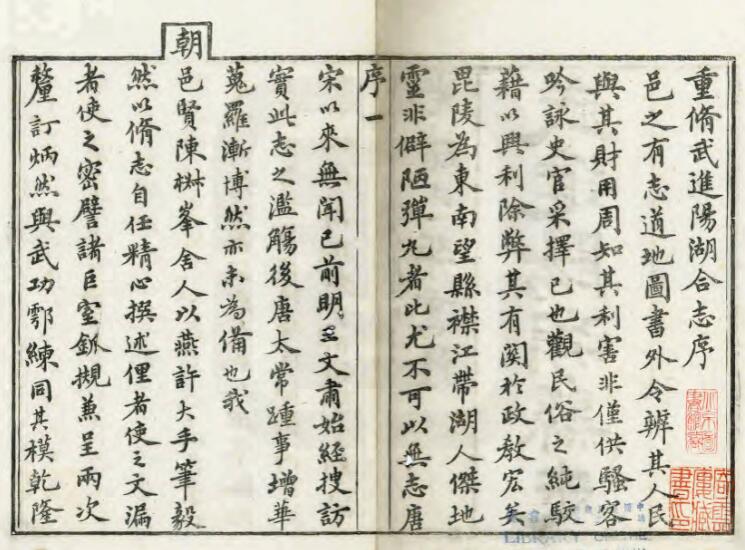 重脩武進陽湖合志序
邑之有志道地圖書外令辨其人民
與其財用周知其利害非僅供騷客
吟詠史官采擇已也觀民俗之純駮
藉以興利除弊其有關於政教宏矣
毘陵為東南望縣襟江帶湖人傑地
靈非僻陋彈丸者比尤不可以無志唐
序一
宋以來無聞已前明王文肅始經搜訪
實此志之濫觴後唐太常踵事增華
蒐羅漸博然亦未為備也我
朝
邑賢陳椒峯舍人以燕許大手筆毅
然以脩志自任精心撰述俚者使之文漏
者使之密譬諸巨室釽摫兼呈兩次
釐訂炳然與武功鄠練同其模乾隆
LIBRARY